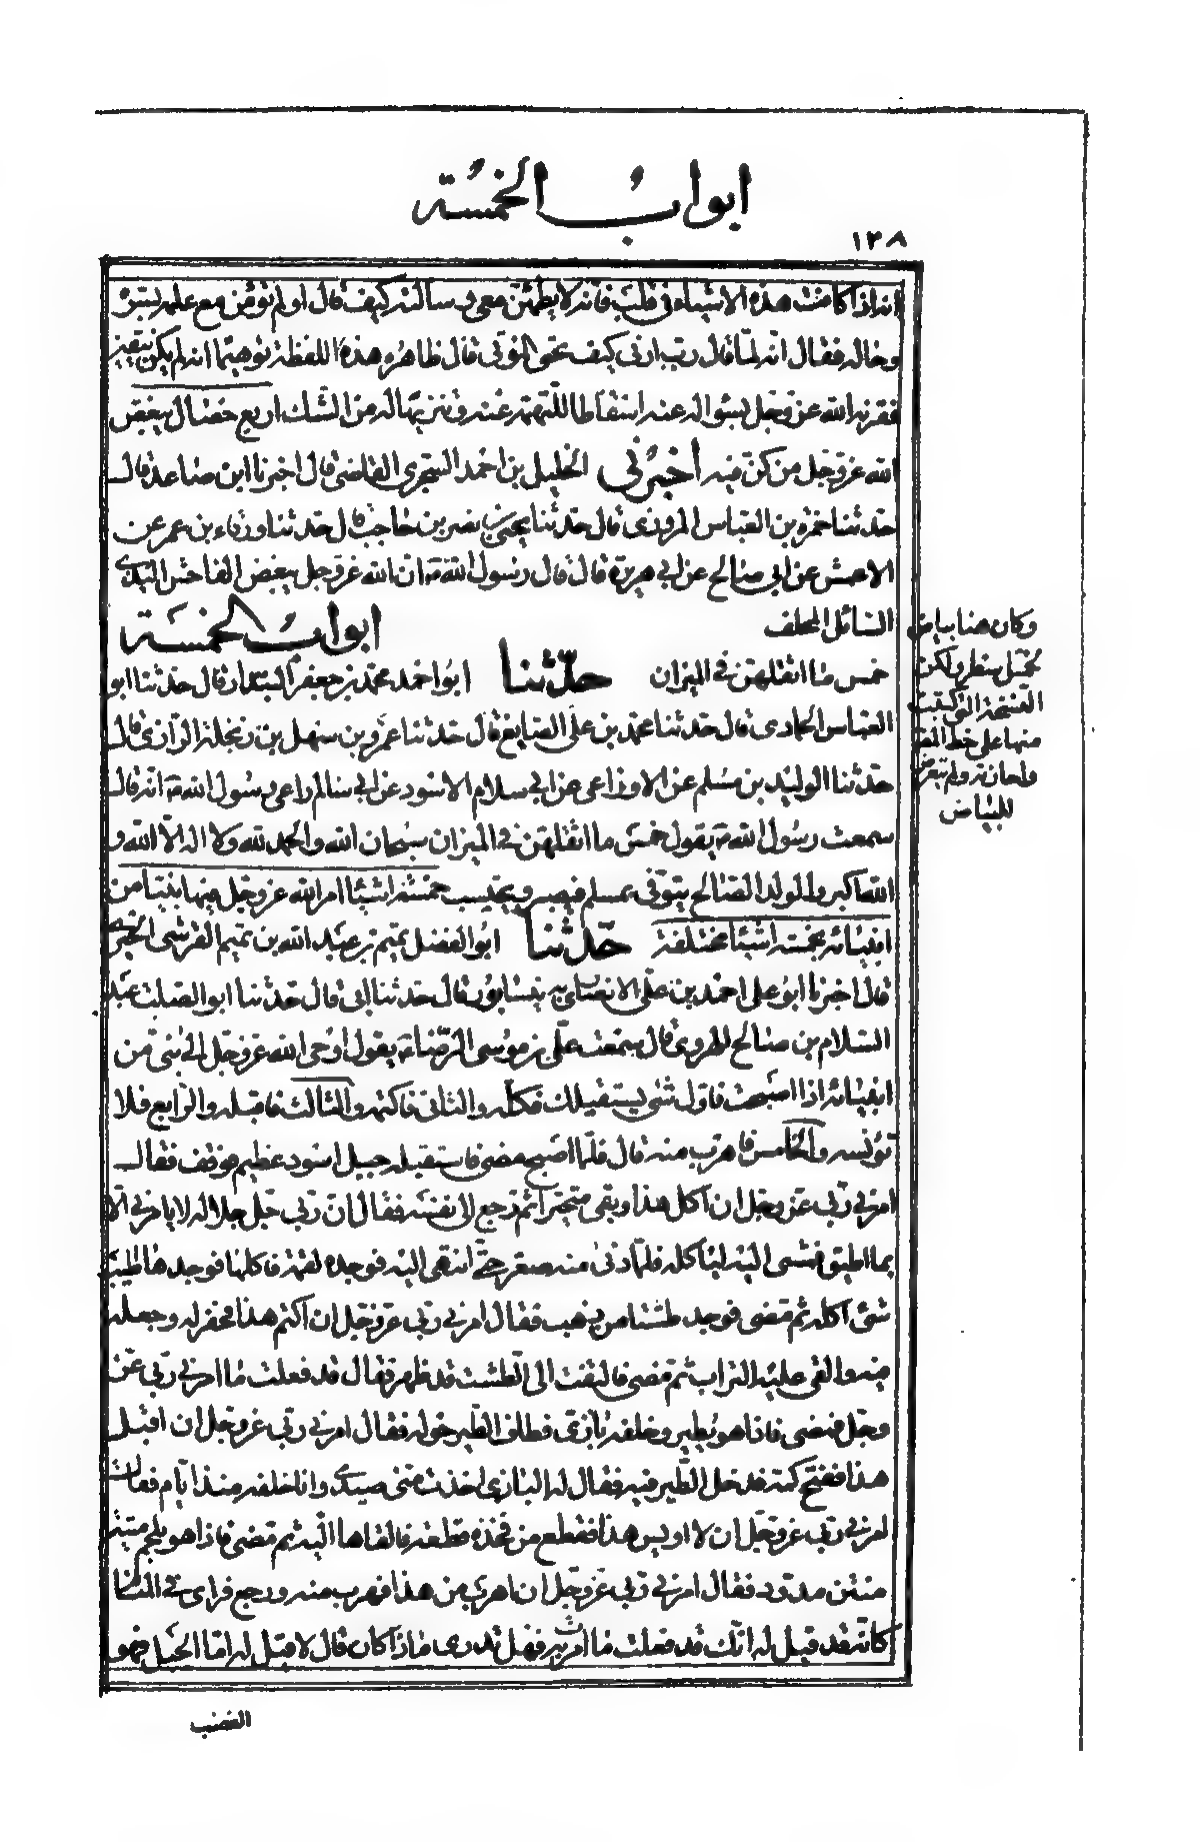 ابواب الخمسة
١٢٨
انه اذا كانت هذه الاشياء في قلبك فانه لا يطمئن معى وسالته كيف قال اولم تؤمن مع علمه بسره
وحاله فقال انه لما قال رب ارنى كيف تحى الموتى قال ظاهر هذه اللفظة توهما انه لم يكن بيقين
فقرره الله عز وجل بسؤاله عنه اسقاطا للتهمة عنه وتنزيها له من الشك اربع خصال يبغض
الله عز وجل من كن فيه اخبرنى الخليل بن احمد السجزى القاضى قال اخبرنا ابن صاعد قال
حدثنا حمزة بن العباس المروزى قال حدثنا يحيى بن نصر بن حاجب قال حدثنا ورقاء بن عمر عن
الاعمش عن ابى صالح عن ابى هريرة قال قال رسول الله ص ان الله عز وجل يبغض الفاحش البذى
السائل الملحف
ابواب الخمسة
خمس ما اثقلهن في الميزان حدثنا ابو احمد محمد بن جعفر البندار قال حدثنا ابو
العباس الحمادى قال حدثنا محمد بن على الصايغ قال حدثنا عمرو بن سهل بن زنجلة الرازى قال
حدثنا الوليد بن مسلم عن الاوزاعى عن ابى سلام الاسود عن ابى سالم راعى رسول الله ص انه قال
سمعت رسول الله ص يقول خمس ما اثقلهن في الميزان سبحان الله والحمد لله ولا اله الا الله و
الله اكبر والولد الصالح يتوفى بمسلم فيصبر ويحتسب خمسة اشيئا امر الله عز وجل فيها نبيا من
انبيائه بخمسة اشيئا مختلفة حدثنا ابو الفضل تميم بن عبد الله بن تميم القرشى الحيرى
قال اخبرنا ابو على احمد بن على الانصارى بنيسابور قال حدثنا ابى قال حدثنا ابو الصلت عبد
السلام بن صالح الهروى قال سمعت على بن موسى الرضا ء يقول اوحى الله عز وجل الى نبى من
انبيائه اذا اصبحت فاول شئ يستقبلك فكله والثانى فاكتمه والثالث فاقبله والرابع فلا
تؤيسه والخامس فاهرب منه قال فلما اصبح مضى فاستقبله جبل اسود عظيم فوقف فقال
امرنى ربى عز وجل ان اكل هذا وبقى متحيرا ثم رجع الى نفسه فقال ان ربى جل جلاله لا يامرنى الا
بما اطيق فمشى اليه ليأكله فلما دنى منه صغر حتى انتهى اليه فوجده لقمة فاكلها فوجدها اطيب
شئ اكله ثم مضى فوجد طشتا من ذهب فقال امرنى ربى عز وجل ان اكتم هذا فحفر له وجعله
فيه والقى عليه التراب ثم مضى فالتفت الى الطشت قد ظهر فقال قد فعلت ما امرنى ربى عز
وجل فمضى فاذا هو بطير وخلفه بازى فطاف الطير حوله فقال امرنى ربى عز وجل ان اقبل
هذا ففتح كمه فدخل الطير فيه فقال له البازى اخذت منى صيدى وانا خلفه منذ ايام فقال
امرنى ربى عز وجل ان لا اويس هذا فقطع من فخذه قطعة فالقاها اليه ثم مضى فاذا هو بلحم ميتة
منتن مدود فقال امرنى ربى عز وجل ان اهرب من هذا فهرب منه ورجع فراى في المنام
كانه قد قيل له انك قد فعلت ما امرت به فهل تدرى ماذا كان قال لا قيل له اما الجبل فهو
الغضب
وكان هنا بياض
يحتمل سطر ولكن
النسخة التى كتبت
منها على خط المص
للبياض